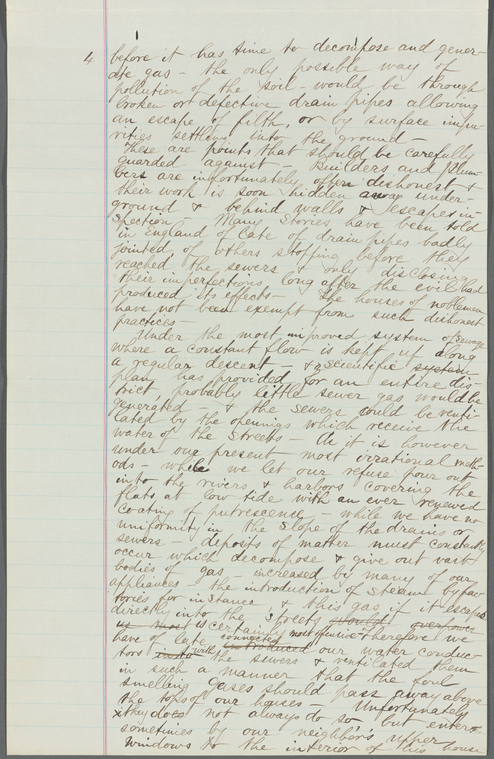 4
before it has time to decompose and gener-
ate gas - the only possible way of
pollution of the soil - would be through
broken or defective drain pipes allowing
an escape of filth, or by surface impu-
rities settling into the ground -
These are points that should be carefully
guarded against - Builders and Plum-
bers are unfortunately often dishonest &
their work is soon hidden away under-
ground & behind walls & escapes in-
spection - Many stories have been told
in England of late of drain pipes badly
jointed, of others stopping before they
reached the sewers & only disclosing
their imperfections long after the evil had
produced its effects - The houses of noblemen
have not been exempt from such dishonest
practices -
Under the most improved system of sewage
where a constant flow is kept up along
a regular descent - & a scientific system
plan has provided for an entire dis-
trict, probably little sewer gas would be
generated - & the sewers could be venti-
lated by the openings which receive the
water of the streets - As it is however
under our present most irrational meth-
ods - while we let our refuse pour out
into the rivers & harbors covering the
flats at low tide with an ever renewed
coating of putrescence - while we have no
uniformity in the slope of the drains or
sewers - deposits of matter must constantly
occur which decompose & give out vast
bodies of gas - increased by many of our
appliances - the introduction of steam by fac-
tories for instance, & this gas if it escapes
directly into the streets should overpower
us most is certainly most offensive & therefore we
have of late connected introduced our water conduc-
tors into with the sewers & ventilated them
in such a manner that the foul
smelling gases should pass away above
the tops of our houses - Unfortunately
they do not always do so, but enter
sometimes by our neighbor's upper
windows to the interior of his house